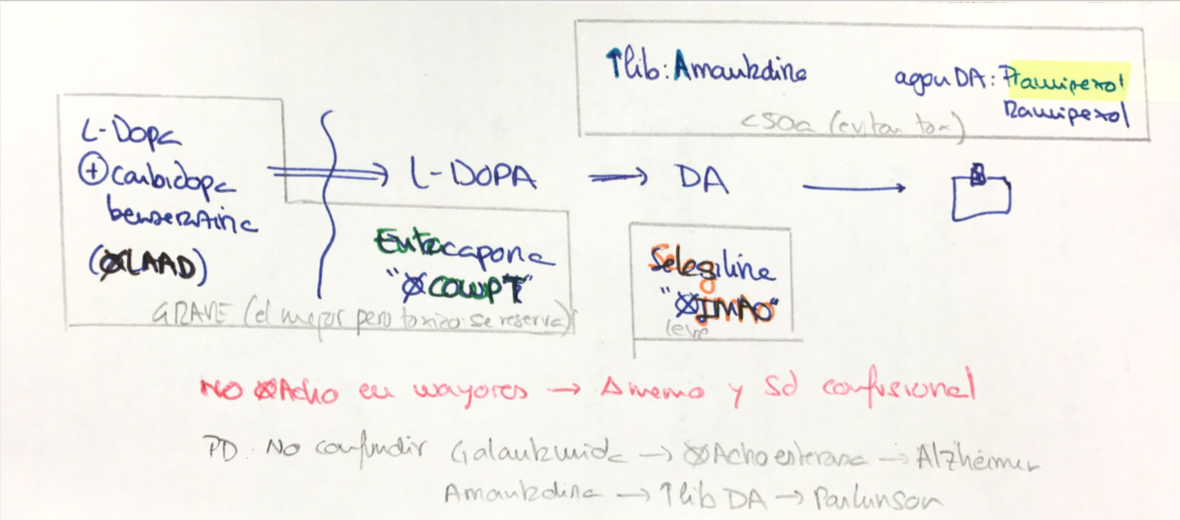 ↑lib: Amantadina
agon DA: Pramipexol
Ramipexol
<50a (evitan tox)
L-Dopa
⊕ carbidopa
benserazina
(ØLAAD)
L-DOPA → DA
Entacapona
"ØCOMPT"
Selegilina
"ØIMAO"
leve
GRAVE (el mejor pero toxico se reserva)
NO ØAcho en mayores → Amemo y Sd confusional
PD. No confundir Galantamida → ØAchoesterasa → Alzhéimer
Amantadina → ↑lib DA → Parkinson